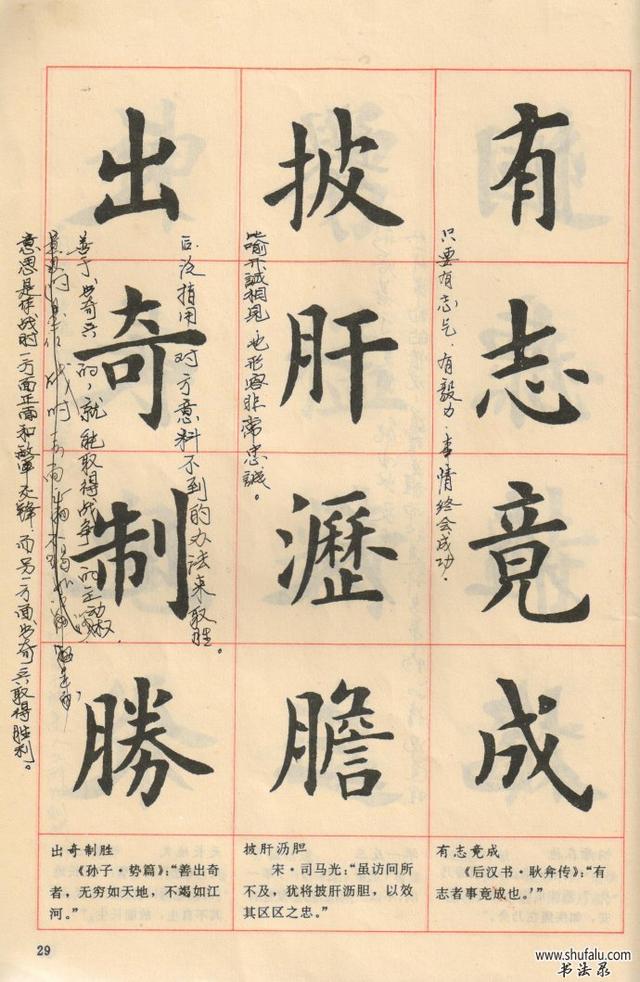 有志竟成
只要有志气，有毅力，事情终会成功．
披肝瀝膽
比喻开誠相見，也形容非常忠誠。
出奇制勝
后泛指用对方意料不到的办法来取胜。
善于出奇兵的，就能取得战争的主动权．
意思是作战时一方面正面和敌军交锋而另一方面出奇兵取得胜利。
有志竟成
《后汉书·耿弇传》：“有
志者事竟成也。’”
披肝沥胆
宋·司马光：“虽访问所
不及，犹将披肝沥胆，以效
其区区之忠。”
出奇制胜
《孙子·势篇》：“善出奇
者，无穷如天地，不竭如江
河。”
29
www.shufalu.com
书法录